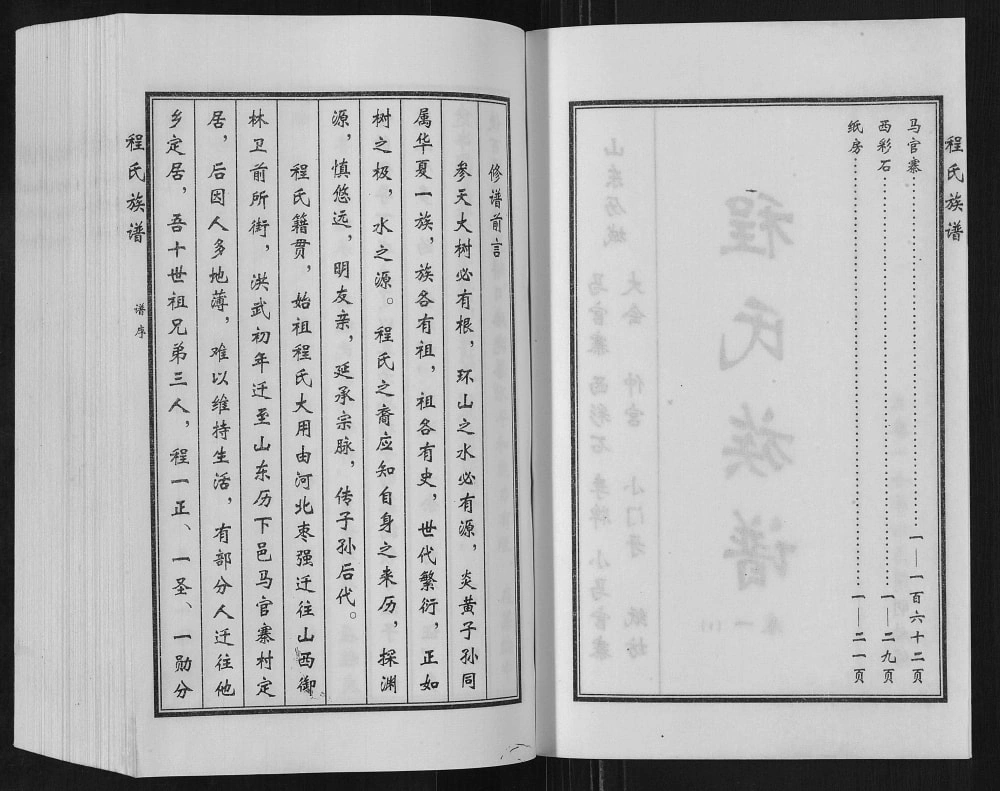 程氏族谱
马官寨……一—一百六十二页
西彩石……一—二九页
纸房……一—二一页
修谱前言
参天大树必有根，环山之水必有源，炎黄子孙同
属华夏一族，族各有祖，祖各有史，世代繁衍，正如
树之极，水之源。程氏之裔应知自身之来历，探渊
源，慎悠远，明友亲，延承宗脉，传子孙后代。
程氏籍贯，始祖程氏大用由河北枣强迁往山西御
林卫前所街，洪武初年迁至山东历下邑马官寨村定
居，后因人多地薄，难以维持生活，有部分人迁往他
乡定居，吾十世祖兄弟三人，程一正、一圣、一勋分
程氏族谱
谱序